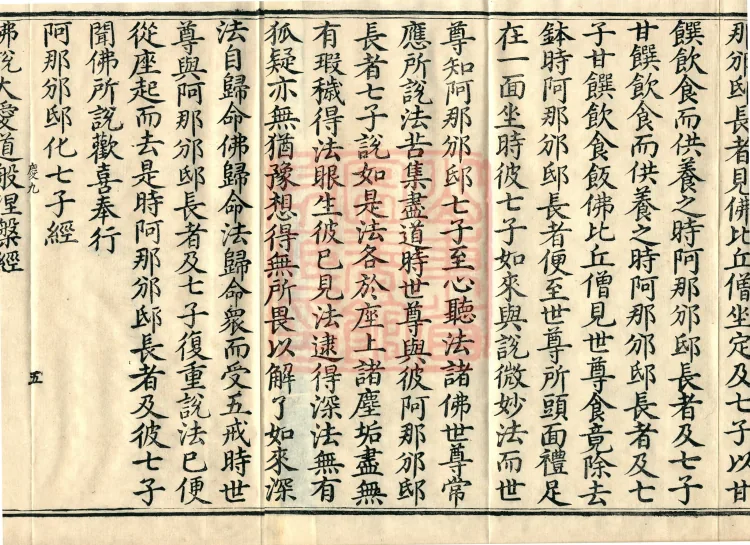 那邠邸長者見佛比丘僧坐定及七子以甘
饌飲食而供養之時阿那邠邸長者及七子
甘饌飲食而供養之時阿那邠邸長者及七
子甘饌飲食飯佛比丘僧見世尊食竟除去
鉢時阿那邠邸長者便至世尊所頭面禮足
在一面坐時彼七子如來與說微妙法而世
尊知阿那邠邸七子至心聽法諸佛世尊常
應所說法苦集盡道時世尊與彼阿那邠邸
長者七子說如是法各於座上諸塵垢盡無
有瑕穢得法眼生彼已見法逮得深法無有
狐疑亦無猶豫想得無所畏以解了如來深
法自歸命佛歸命法歸命衆而受五戒時世
尊與阿那邠邸長者及七子復重說法已便
從座起而去是時阿那邠邸長者及彼七子
聞佛所說歡喜奉行
阿那邠邸化七子經
慶九
五
佛說大愛道般涅槃經